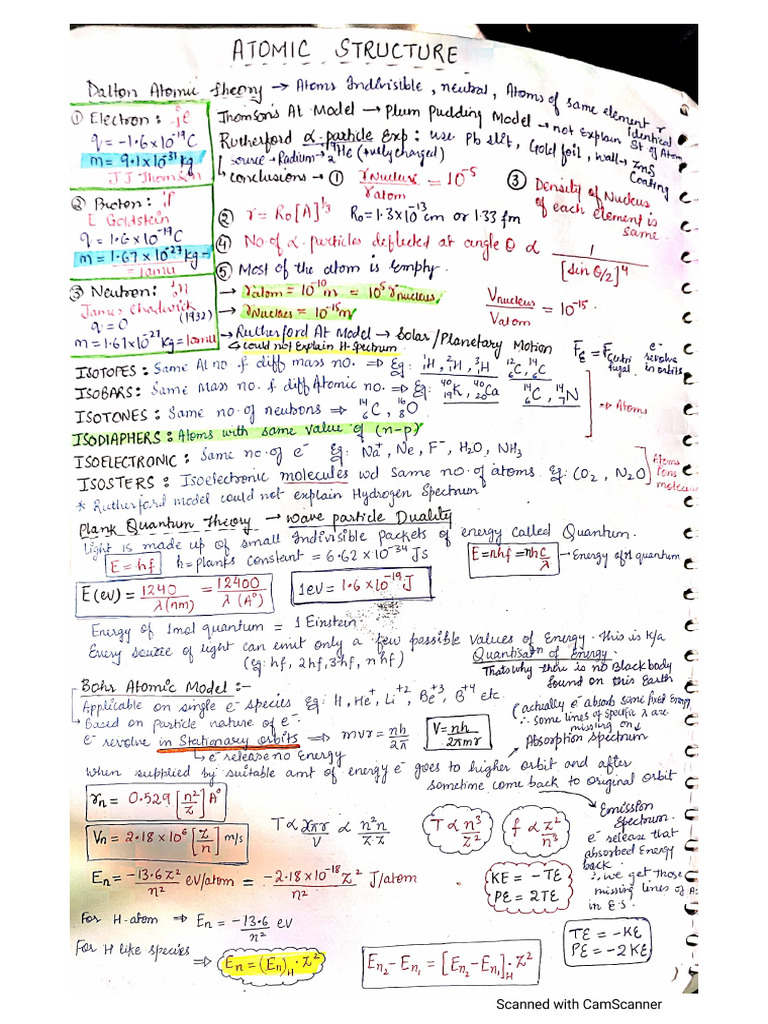 ATOMIC STRUCTURE
Dalton Atomic theory → Atoms Indivisible, neutral, Atoms of same element r identical
① Electron : -1e
q = -1.6×10⁻¹⁹C
m = 9.1×10⁻³¹kg
JJ Thomson
② Proton :
E Goldstein
q = 1.6×10⁻¹⁹C
m = 1.67×10⁻²⁷kg =
= 1amu
③ Neutron :
James Chadwick
q = 0 (1932)
m = 1.67×10⁻²⁷kg = 1amu
Thomson's At Model → Plum Pudding Model → not Explain St of Atom
Rutherford α-particle Exp : use Pb slit, Gold foil, wall → ZnS Coating
source → Radium → ₂⁴He (+vely charged)
Conclusions → ① rnucleus/ratom = 10⁻⁵
③ Density of Nucleus of each element is same
② r = R₀[A]^1/3 R₀ = 1.3×10⁻¹³cm or 1.33 fm
④ No of α particles deflected at angle θ α 1/[sin θ/2]⁴
⑤ Most of the atom is Empty.
→ ratom = 10⁻¹⁰m = 10⁵ rnucleus
Vnucleus/Vatom = 10⁻¹⁵
→ rnucleus = 10⁻¹⁵m
→ Rutherford At Model → Solar/Planetary Motion
FE = Fcentrifugal e⁻ revolve in orbits
↳ could not Explain H-Spectrum
ISOTOPES : Same At no. & diff mass no. ⇒ Eg: ¹₁H, ²₁H, ³₁H ¹²₆C, ¹⁴₆C
ISOBARS : Same Mass no. & diff Atomic no. ⇒ Eg: ⁴⁰₁₉K, ⁴⁰₂₀Ca ¹⁴₆C, ¹⁴₇N
→ Atoms
ISOTONES : Same no. of neutrons ⇒ ¹⁴₆C, ¹⁶₈O
ISODIAPHERS : Atoms with same value of (n-p)
ISOELECTRONIC : Same no. of e⁻ Eg: Na⁺, Ne, F⁻, H₂O, NH₃
ISOSTERS : Isoelectronic molecules wd same no. of atoms. eg: CO₂, N₂O
Atoms Ions molecu
* Rutherford model could not explain Hydrogen Spectrum
Plank Quantum Theory → wave particle Duality
Light is made up of small Indivisible packets of energy called Quantum.
E = hf h = planks constant = 6.62×10⁻³⁴Js
E = nhf = nhc/λ → Energy of n quantum
E(eV) = 1240/λ(nm) = 12400/λ(A°)
1eV = 1.6×10⁻¹⁹J
Energy of 1mol quantum = 1 Einstein
Every source of light can emit only a few possible values of Energy. this is k/a Quantisatⁿ of Energy.
(eg: hf, 2hf, 3hf, nhf)
Thats why there is no Black body found on this Earth
Bohr Atomic Model :-
Applicable on single e⁻ species Eg: H, He⁺, Li⁺², Be⁺³, B⁺⁴ etc.
Based on particle nature of e⁻.
e⁻ revolve in stationary orbits ⇒ mvr = nh/2π
V = nh/2πmr
(actually e⁻ absorb some fixed Energy ∴ some lines of specific λ are missing on Absorption Spectrum
↳ e⁻ release no Energy
When supplied by suitable amt of energy e⁻ goes to higher orbit and after sometime come back to original orbit
rn = 0.529 [n²/Z] A°
Vn = 2.18×10⁶ [Z/n] m/s
T α 2πr/V α n²n/Z.Z
T α n³/Z²
f α Z²/n³
Emission Spectrum.
e⁻ release that absorbed Energy back.
∴ we get those missing lines of A. in E.S.
En = -13.6Z²/n² eV/atom = -2.18×10⁻¹⁸Z²/n² J/atom
KE = -TE
PE = 2TE
For H-atom ⇒ En = -13.6/n² eV
TE = -KE
PE = -2KE
For H like species ⇒ En = (En)H . Z²
En₂ - En₁ = [En₂ - En₁]H . Z²
Scanned with CamScanner